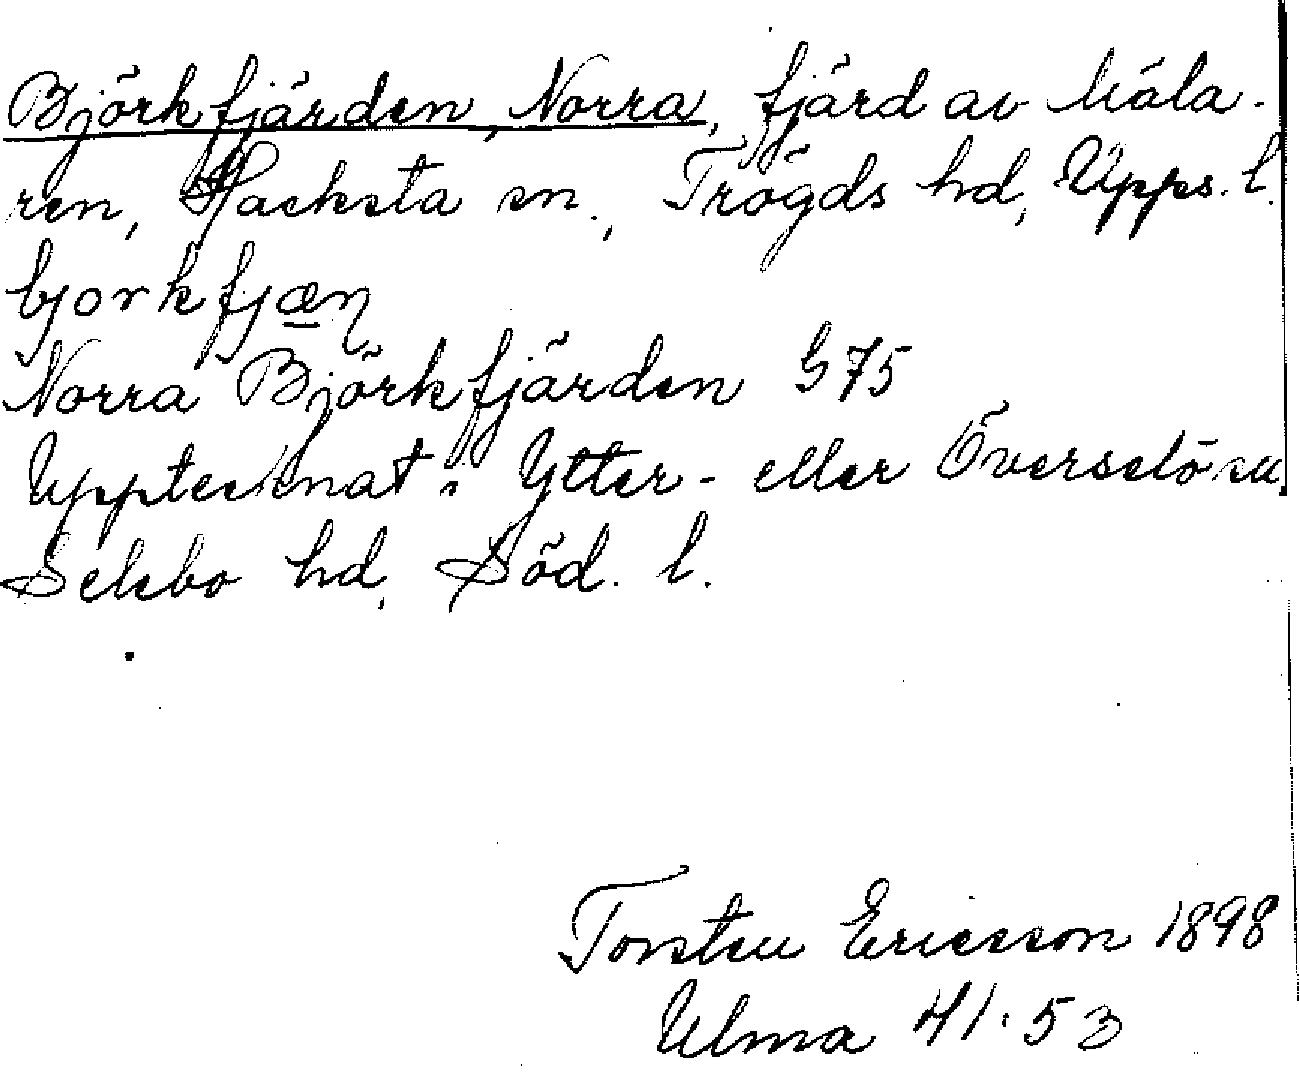 Björkfjärden, Norra, fjärd av Mäla-
ren, Hacksta sn., Trögds hd, Upps. l.
bjorkfjæn
Norra Björkfjärden G75
Upptecknat i Ytter- eller Överselö sn,
Selebo hd, Söd. l.
Torsten Ericsson 1898
Ulma 41:53